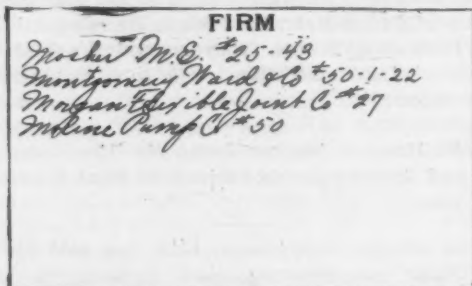 FIRM
Mosher M. E. #25-43
Montgomery Ward & Co #50-1-22
Morgan Flexible Joint Co #27
Moline Pump Co #50